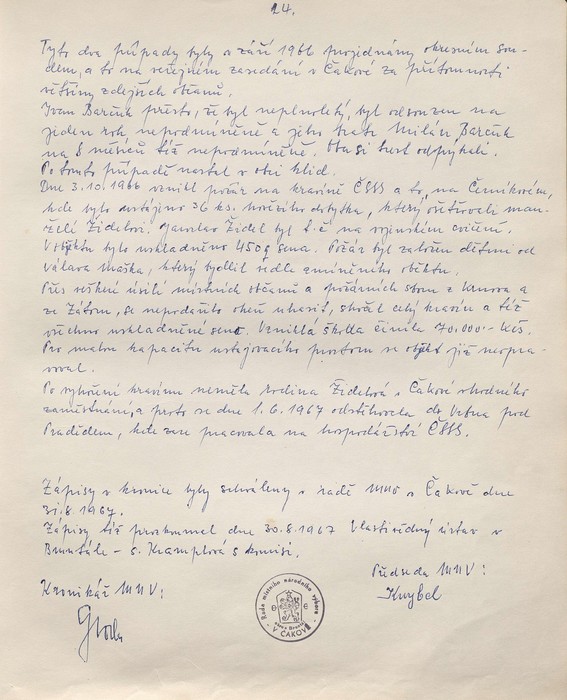 24.
Tyto dva případy byly v září 1966 projednány okresním sou-
dem, a to na veřejném zasedání v Čakové za přítomnosti
většiny zdejších občanů.
Ivan Barčuk přesto, že byl neplnoletý, byl odsouzen na
jeden rok nepodmíněně a jeho bratr Milán Barčuk
na 8 měsíců též nepodmíněně. Oba si trest odpykali.
Po tomto případě nastal v obci klid.
Dne 3.10.1966 vznikl požár na kravíně ČSSS a to, na Černíkovém,
kde bylo ustájeno 36 ks. hovězího dobytka, který ošetřovali man-
želé Židelovi. Jaroslav Židel byl t.č. na vojenském cvičení.
V objektu bylo uskladněno 450 q sena. Požár byl založen dětmi od
Válova Maška, který bydlil vedle zmíněného objektu.
Přes veškeré úsilí místních občanů a požárních sborů z Krnova a
ze Zátoru, se nepodařilo oheň uhasit, shořel celý kravín a též
všechno uskladněné seno. Vzniklá škoda činila 70.000.- Kčs.
Pro malou kapacitu ustajovacího prostoru se objekt již neopra-
voval.
Po vyhoření kravína neměla rodina Židelová v Čakové vhodného
zaměstnání, a proto se dne 1.6.1967 odstěhovala do Vrbna pod
Pradědem, kde zase pracovala na hospodářství ČSSS.
Zápisy v kronice byly schváleny v radě MNV v Čakové dne
31.8.1967.
Zápisy též prozkoumal dne 30.8.1967 Vlastivědný ústav v
Bruntále - s. Kramplova s komisí.
Předseda MNV:
Kronikář MNV:
Knybel
Rada místního národního výboru
V ČAKOVÉ